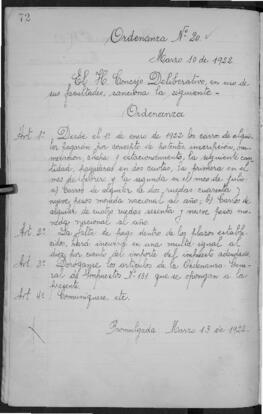 72
Ordenanza Nº 20.
Marzo 10 de 1922
El H. Concejo Deliberativo, en uso de
sus facultades, sanciona la siguiente-
Ordenanza
Art 1º Desde el 1º de enero de 1922 los carros de alqui-
ler pagarán por concepto de patente inscripción, nu-
meración chapa y estacionamiento, la siguiente can-
tidad, pagadera en dos cuotas, la primera en el
mes de febrero y la segunda en el mes de julio
a) Carros de alquiler de dos ruedas cuarenta y
nueve pesos moneda nacional al año; b) Carros de
alquiler de cuatro ruedas sesenta y nueve pesos mo-
neda nacional al año.
Art 2º La falta de pago dentro de los plazos estable-
cidos, hará incurrir en una multa igual al
diez por ciento del importe del impuesto adeudado
Art 3º Deróganse los artículos de la Ordenanza Gene-
ral de Impuestos Nº 131 que se opongan a la
presente.
Art 4º Comuníquese, etc.
Promulgada Marzo 13 de 1922.